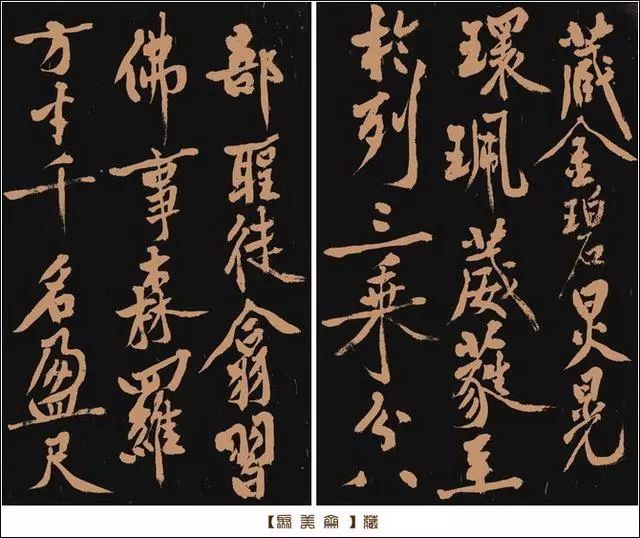 藏金碧炅晃
環珮葳蕤至
於列三乘分八
部聖徒翕習
佛事森羅
方寸千名盈尺
美 】藏